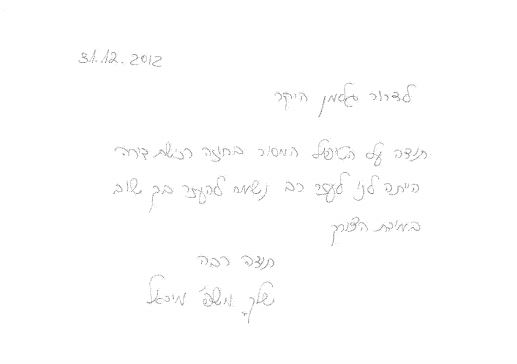 31.12.2012
לדרור גלאמן היקר
תודה על הטיפול המסור בחוזה רכישת דירה
היית לנו לעזר רב נשמח להעזר בך שוב
במידת הצורך
תודה רבה
שלך, משפ' מיכאל